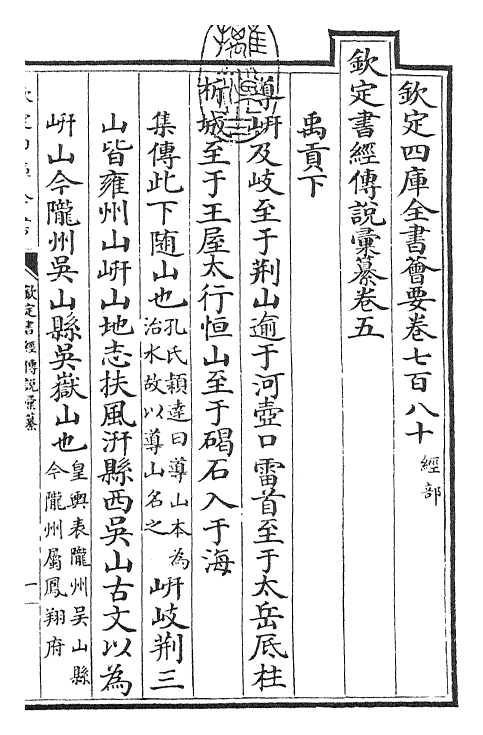 欽定四庫全書薈要卷七百八十 經部
欽定書經傳說彙纂卷五
禹貢下
導岍及岐至于荆山逾于河壺口雷首至于太岳厎柱
析城至于王屋太行恒山至于碣石入于海
集傳此下随山也孔氏穎達曰導山本為治水故以導山名之岍岐荆三
山皆雍州山岍山地志扶風汧縣西吳山古文以為
岍山今隴州吳山縣吳嶽山也皇輿表隴州吳山縣今隴州屬鳳翔府
欽定書經傳說彙纂
一